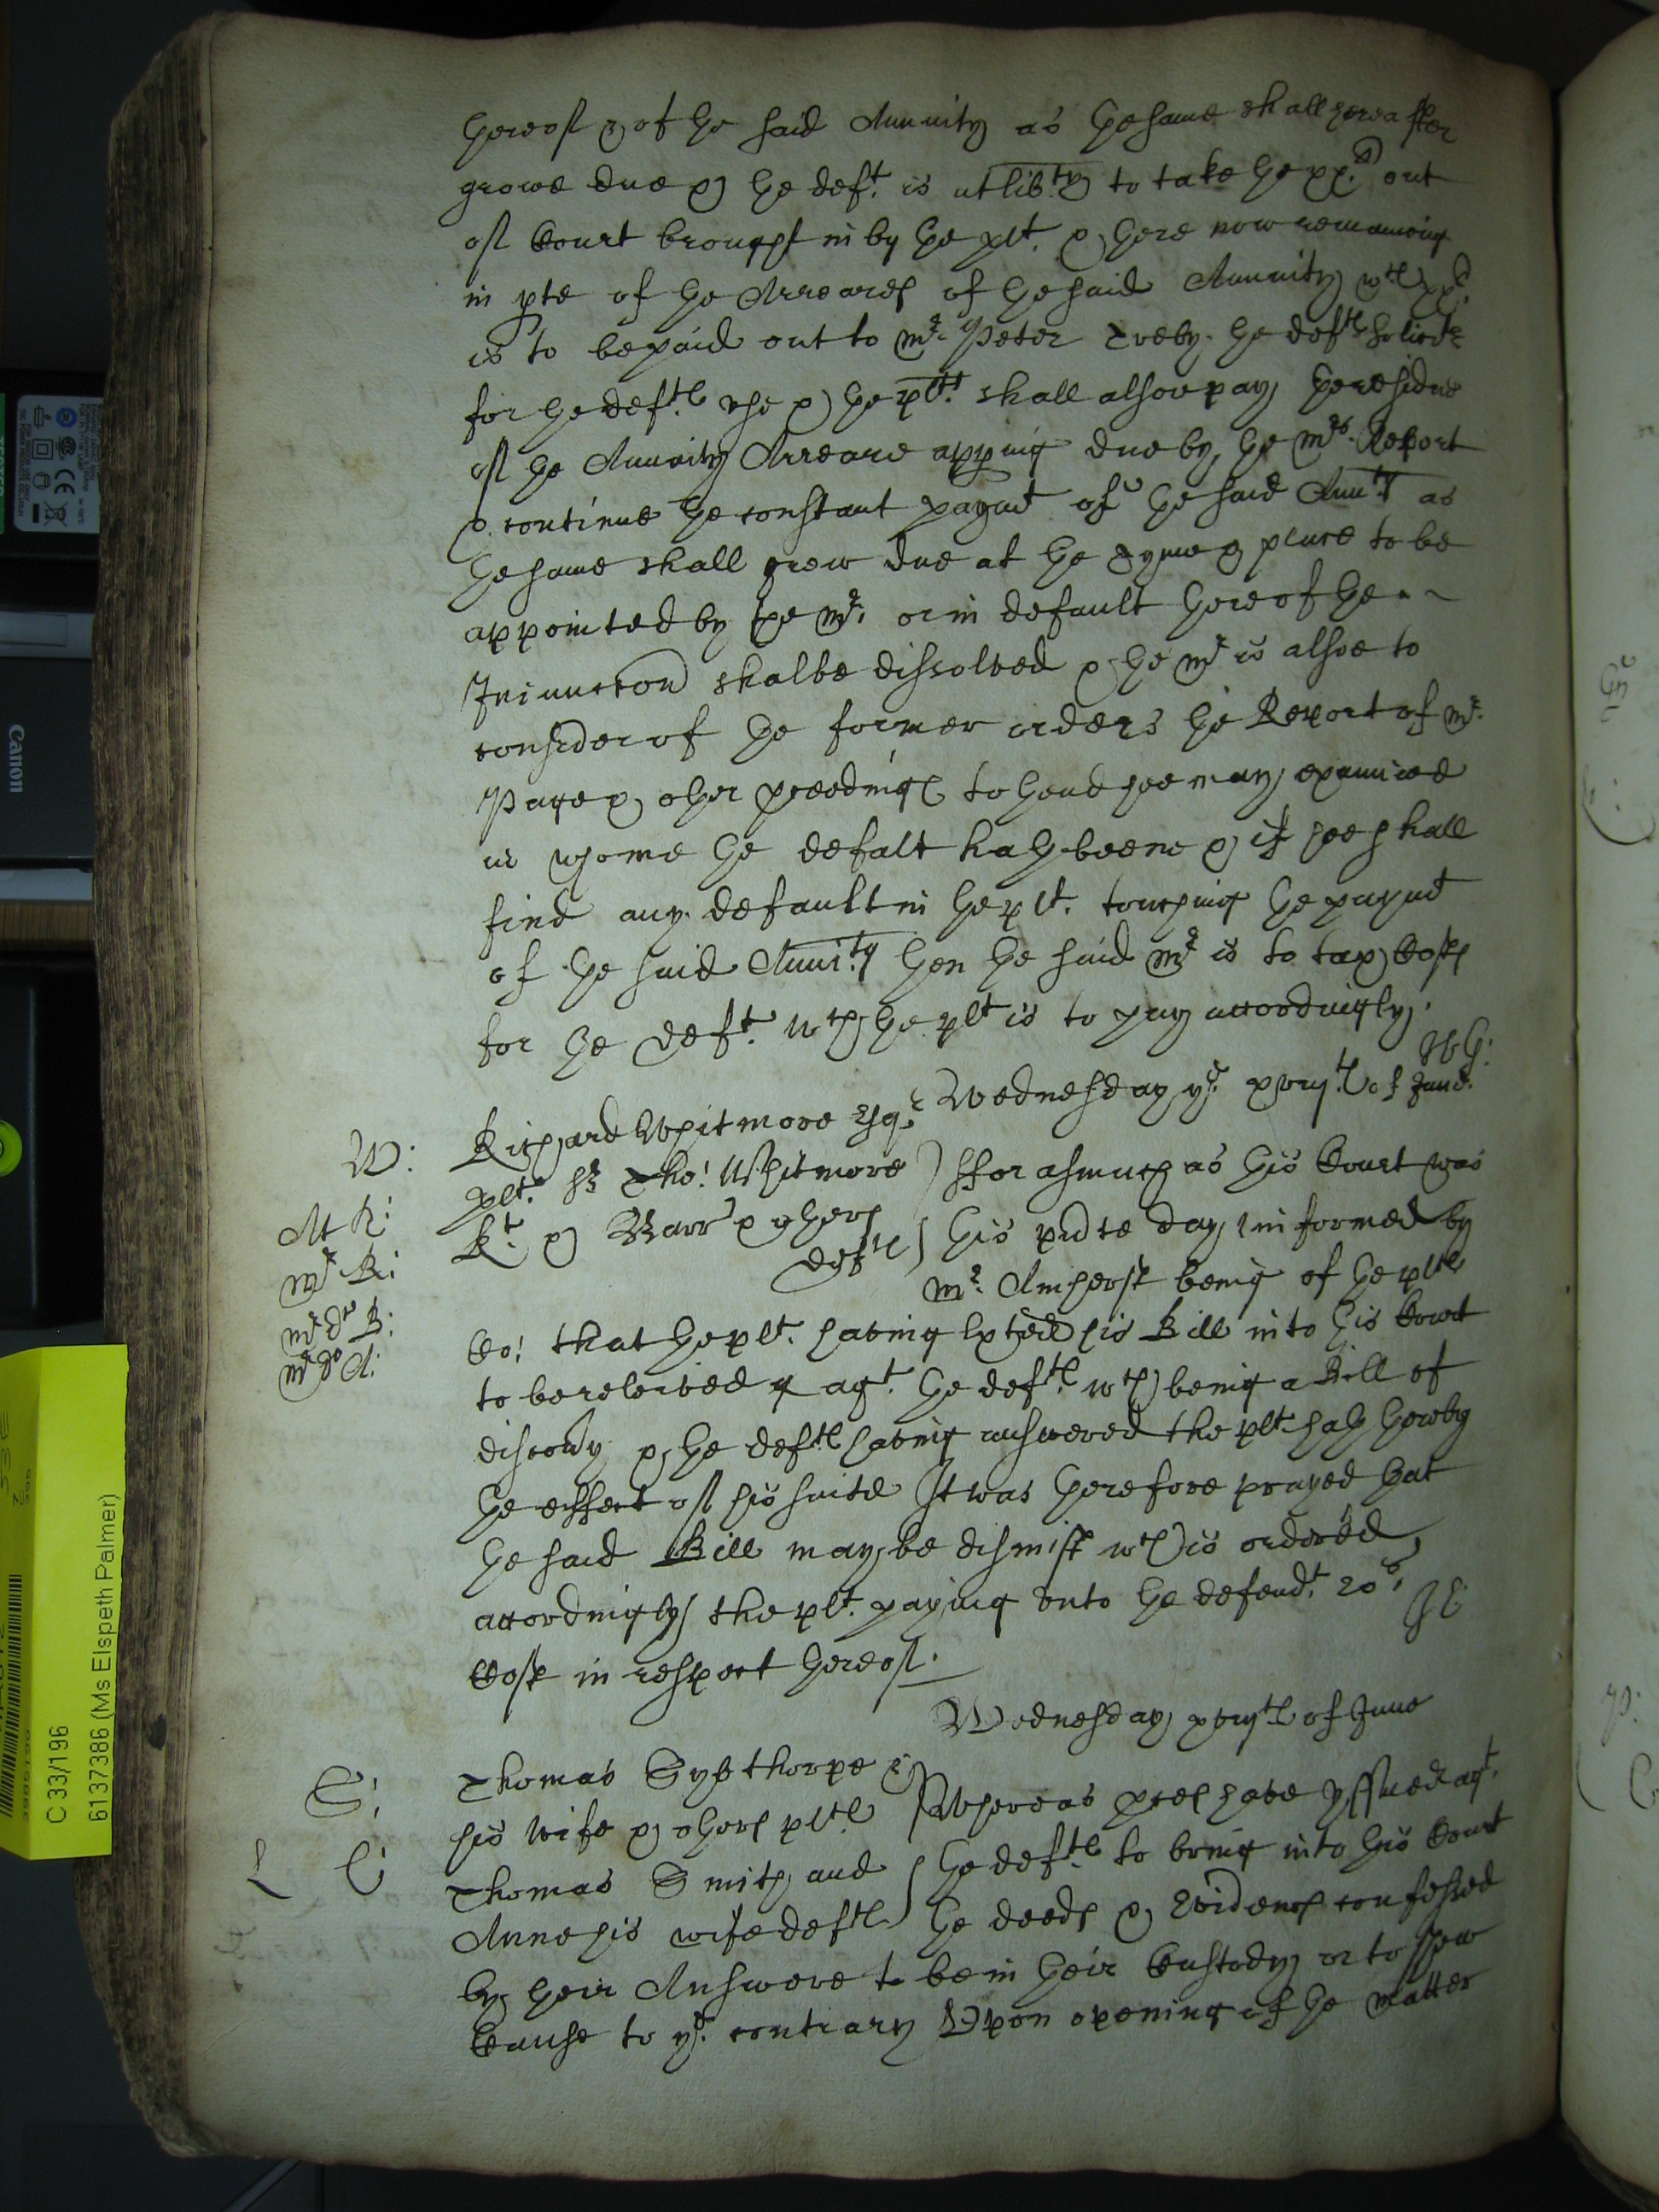 thereof & of the said Annuity as the same shall hereafter
growe due & the deft. is at lib:ty to take the xx:li out
of Court brought in by the plt. & there now remaining
in pte of the Arreares of the said Annuity wch xxli
is to be paid out to mr. Peter Treby. the defts Solicitr
for the defts. use & the plt. shall alsoe pay the residue
of the Annuity Arreare appring due by the mrs. Report
& continue the constant paymt of the said Annty as
the same shall grow due at the tyme & place to be
appointed by the mr. or in default thereof the
Iniunccon shalbe dissolved & the mr is alsoe to
consider of the former orders the Report of mr.
Page & other pceedings to th end hee may examine
in whome the defalt hath beene & if hee shall
find any default in the plt. touching the paymt
of the said Annity then the said mr is to tax Costs
for the deft. wch the plt is to pay accordingly.
Wednesday ye. xviijth of June.
W:
Richard Whitmore Esqr
plt. Sr Tho: Whitmore
Kt. & Barr & others
defts
At R:
mr R:
mr dr B:
mr dr A:
Fforasmuch as this Court was
this pnte day informed by
mr. Amherst being of the plts
Co: that the plt. having exhted his Bill into this Court
to be releived agt. the defts. wch being a Bill of
discovy & the defts having answered the plt hath therby
the effect of his suite It was therefore prayed that
the said Bill may be dismist wch is ordered
accordingly the plt. paying unto the defendt. 20s.
Cost in respect thereof.
Wednesday xviijth of June
S:
L C:
Thomas Sybthorpe &
his wife & others plts
Thomas Smith and
Anne his wife defts
Whereas pces have yssued agt.
the defts. to bring into this Court
the deeds & Evidences confessed
by their Answere to be in their Custody or to shew
Cause to ye. contrary Upon opening of the matter
Canon
C 33/196
6137386 (Ms Elspeth Palmer)